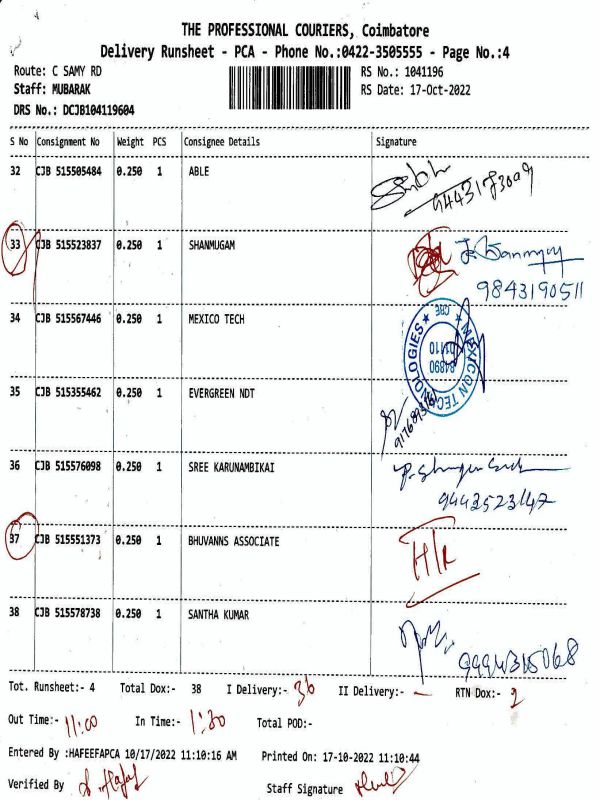 THE PROFESSIONAL COURIERS, Coimbatore
Delivery Runsheet - PCA - Phone No.:0422-3505555 - Page No.:4
Route: C SAMY RD RS No.: 1041196
Staff: MUBARAK RS Date: 17-Oct-2022
DRS No.: DCJB104119604
S No Consignment No Weight PCS Consignee Details Signature
32 CJB 515505484 0.250 1 ABLE
33 CJB 515523837 0.250 1 SHANMUGAM
9843190511
34 CJB 515567446 0.250 1 MEXICO TECH
MEXICON TECHNOLOGIES
CBE
35 CJB 515355462 0.250 1 EVERGREEN NDT
36 CJB 515576098 0.250 1 SREE KARUNAMBIKAI
9443523147
37 CJB 515551373 0.250 1 BHUVANNS ASSOCIATE
38 CJB 515578738 0.250 1 SANTHA KUMAR
9994315068
Tot. Runsheet:- 4 Total Dox:- 38 I Delivery:- 36 II Delivery:- — RTN Dox:- 2
Out Time:- 11:00 In Time:- 1:30 Total POD:-
Entered By :HAFEEFAPCA 10/17/2022 11:10:16 AM Printed On: 17-10-2022 11:10:44
Verified By Staff Signature